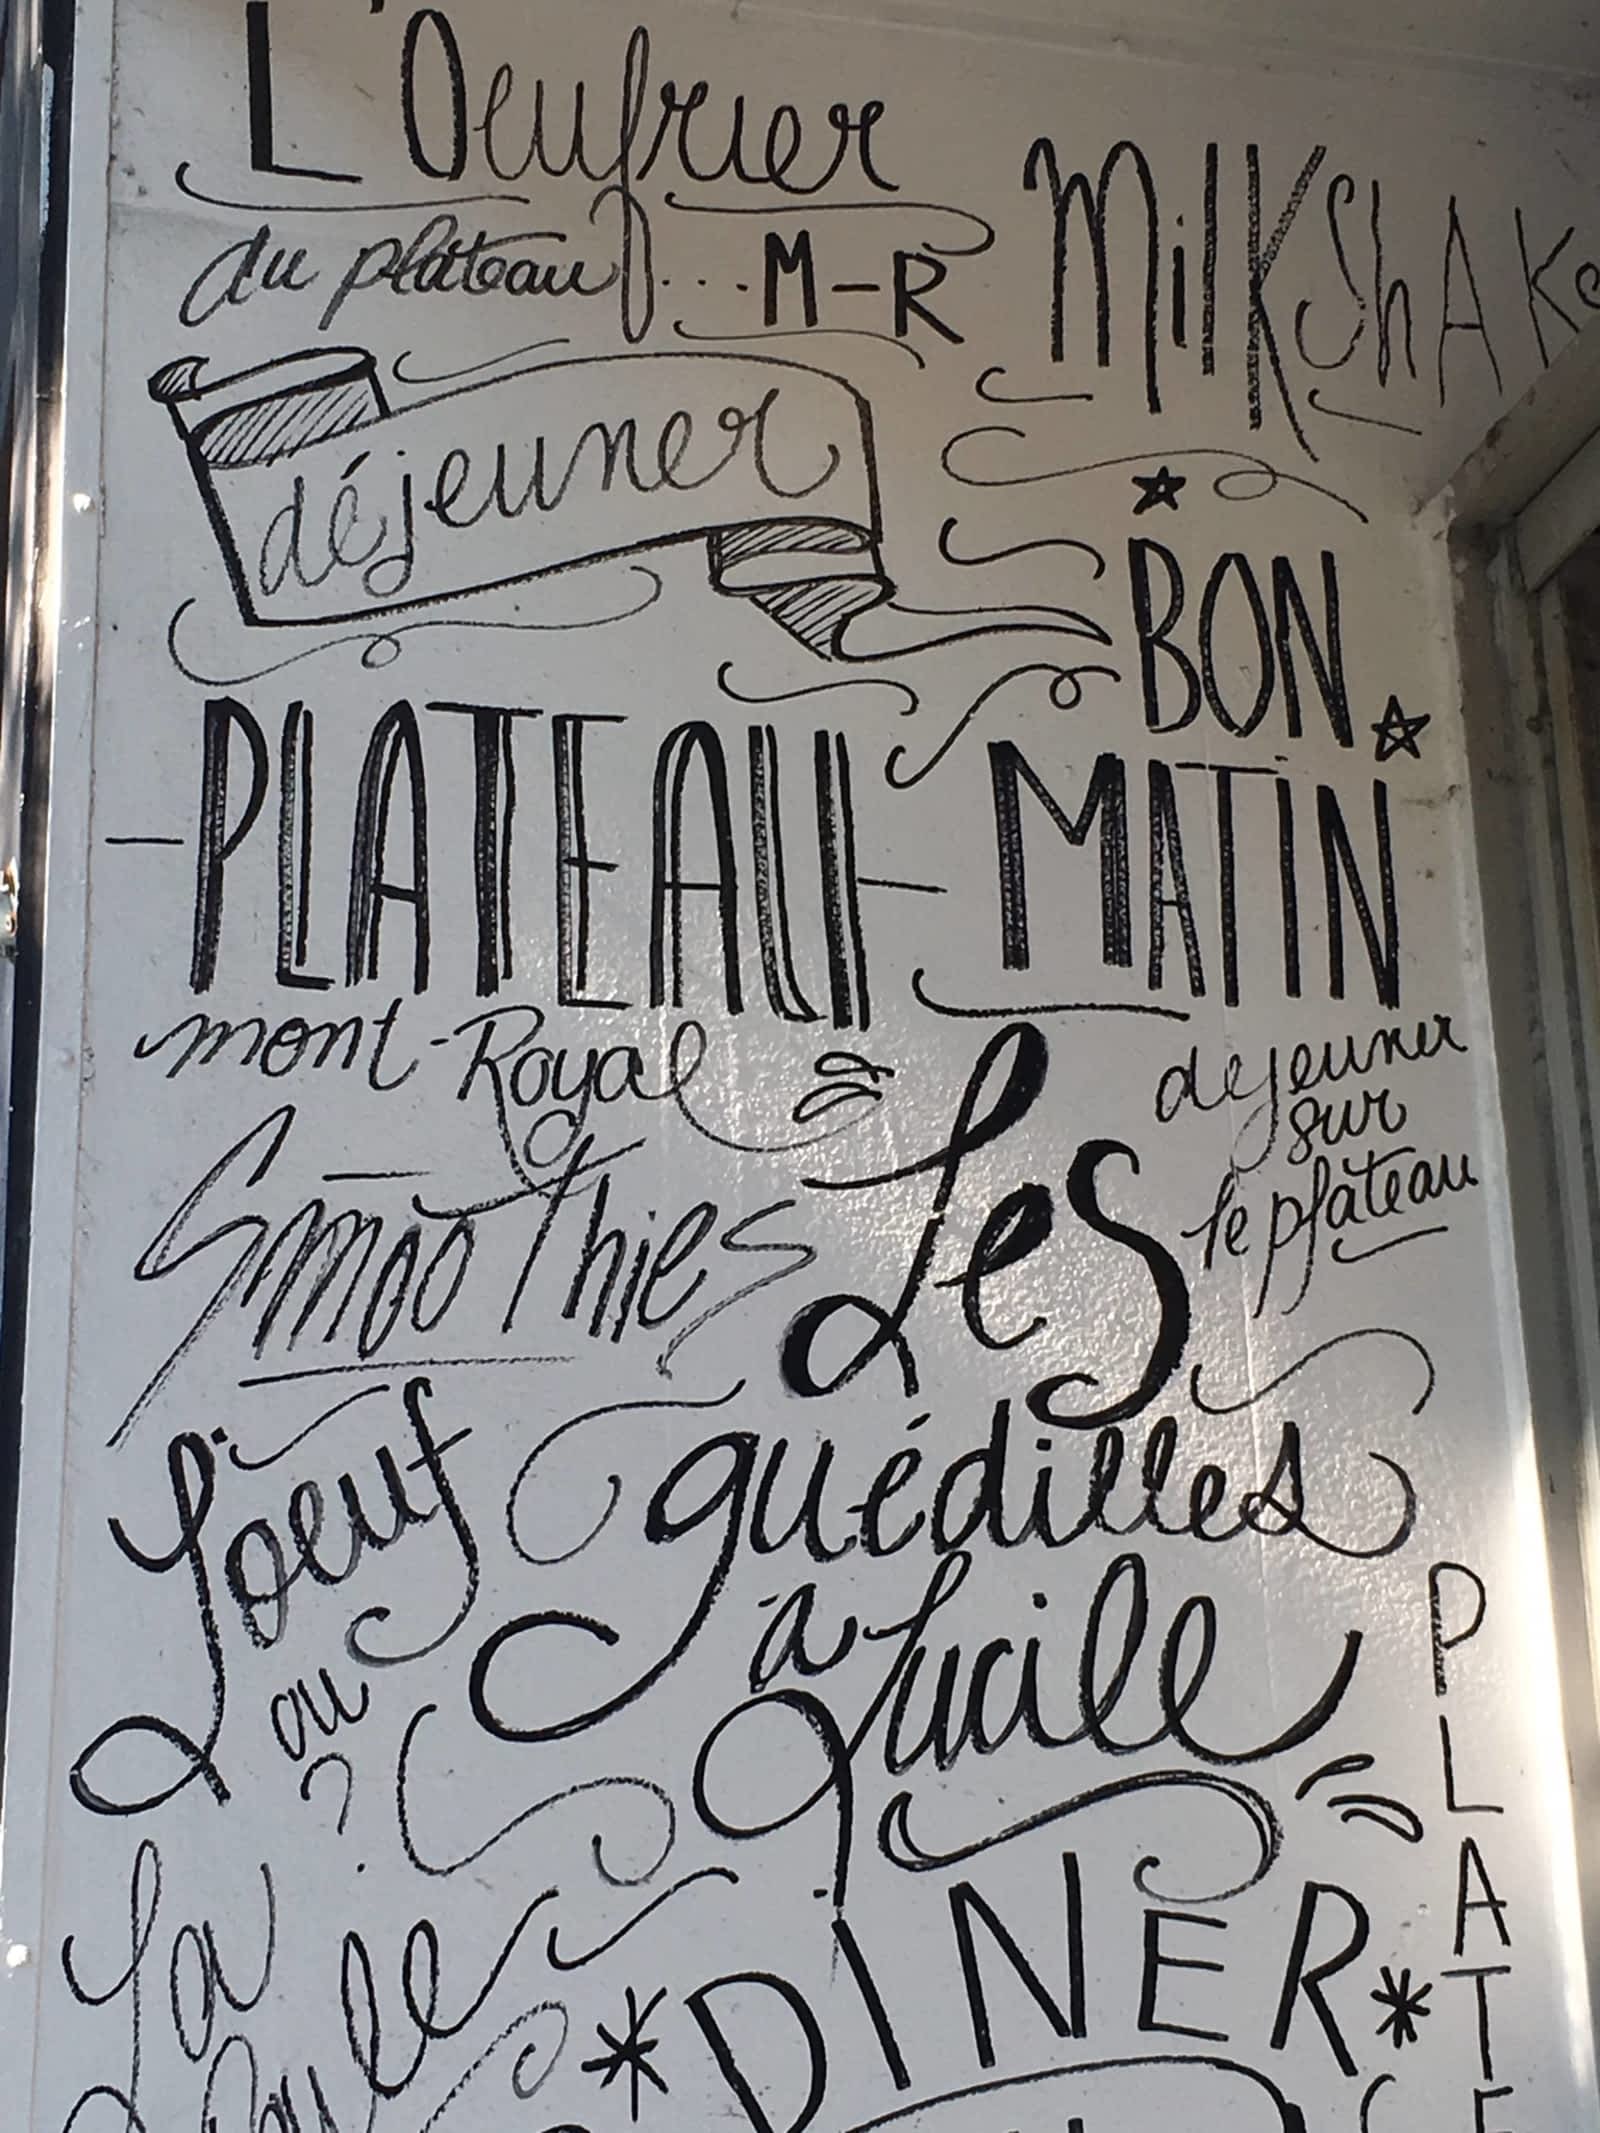 L'Oeufrier
du plateau... M-R
MilKShAKe
déjeuner
BON
MATIN
-PLATEAU-
mont-Royal
dejeuner
sur
le plateau
SmooThies
Les
guédilles
à Lucille
L'oeuf
ou
?
La
Poule
*DINER*
PLATE